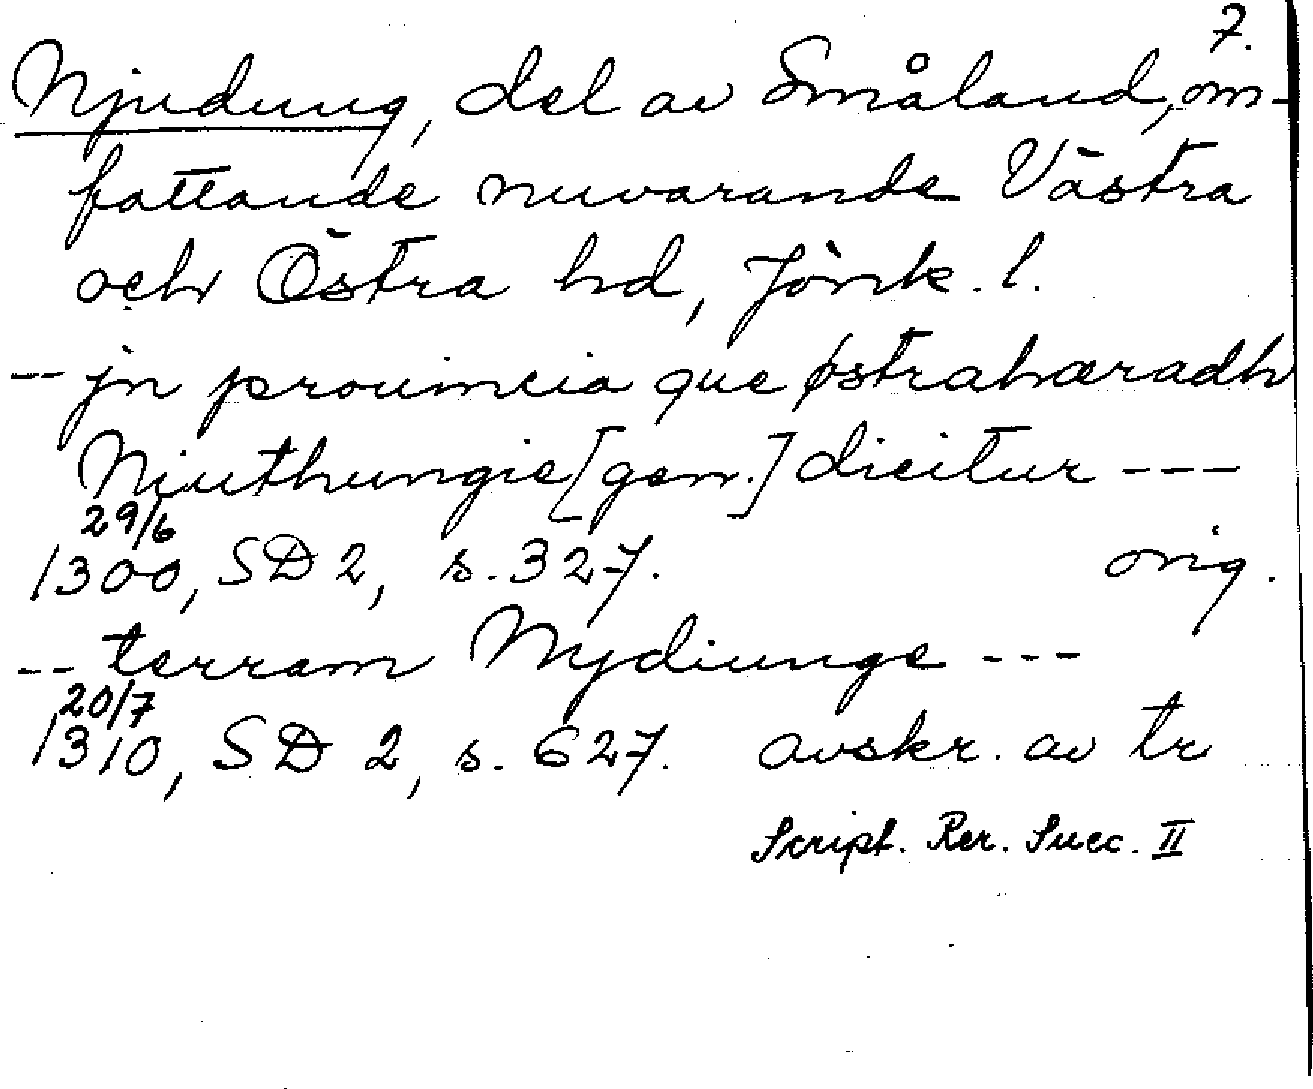 7.
Njudung, del av Småland, om-
fattande nuvarande Västra
och Östra hd, Jönk. l.
-- jn prouincia que østrahæradh
Niuthungie [gen.] dicitur ---
29/6
1300, SD 2, s. 327. orig.
-- terram Nydiunge ---
20/7
1310, SD 2, s. 627. avskr. av tr
Script. Rer. Suec. II